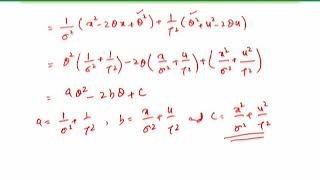 = 1/σ² (x² - 2θx + θ²) + 1/τ² (θ² + μ² - 2θμ)
= θ² (1/σ² + 1/τ²) - 2θ (x/σ² + μ/τ²) + (x²/σ² + μ²/τ²)
= aθ² - 2bθ + c
a = 1/σ² + 1/τ² , b = x/σ² + μ/τ² and c = x²/σ² + μ²/τ²